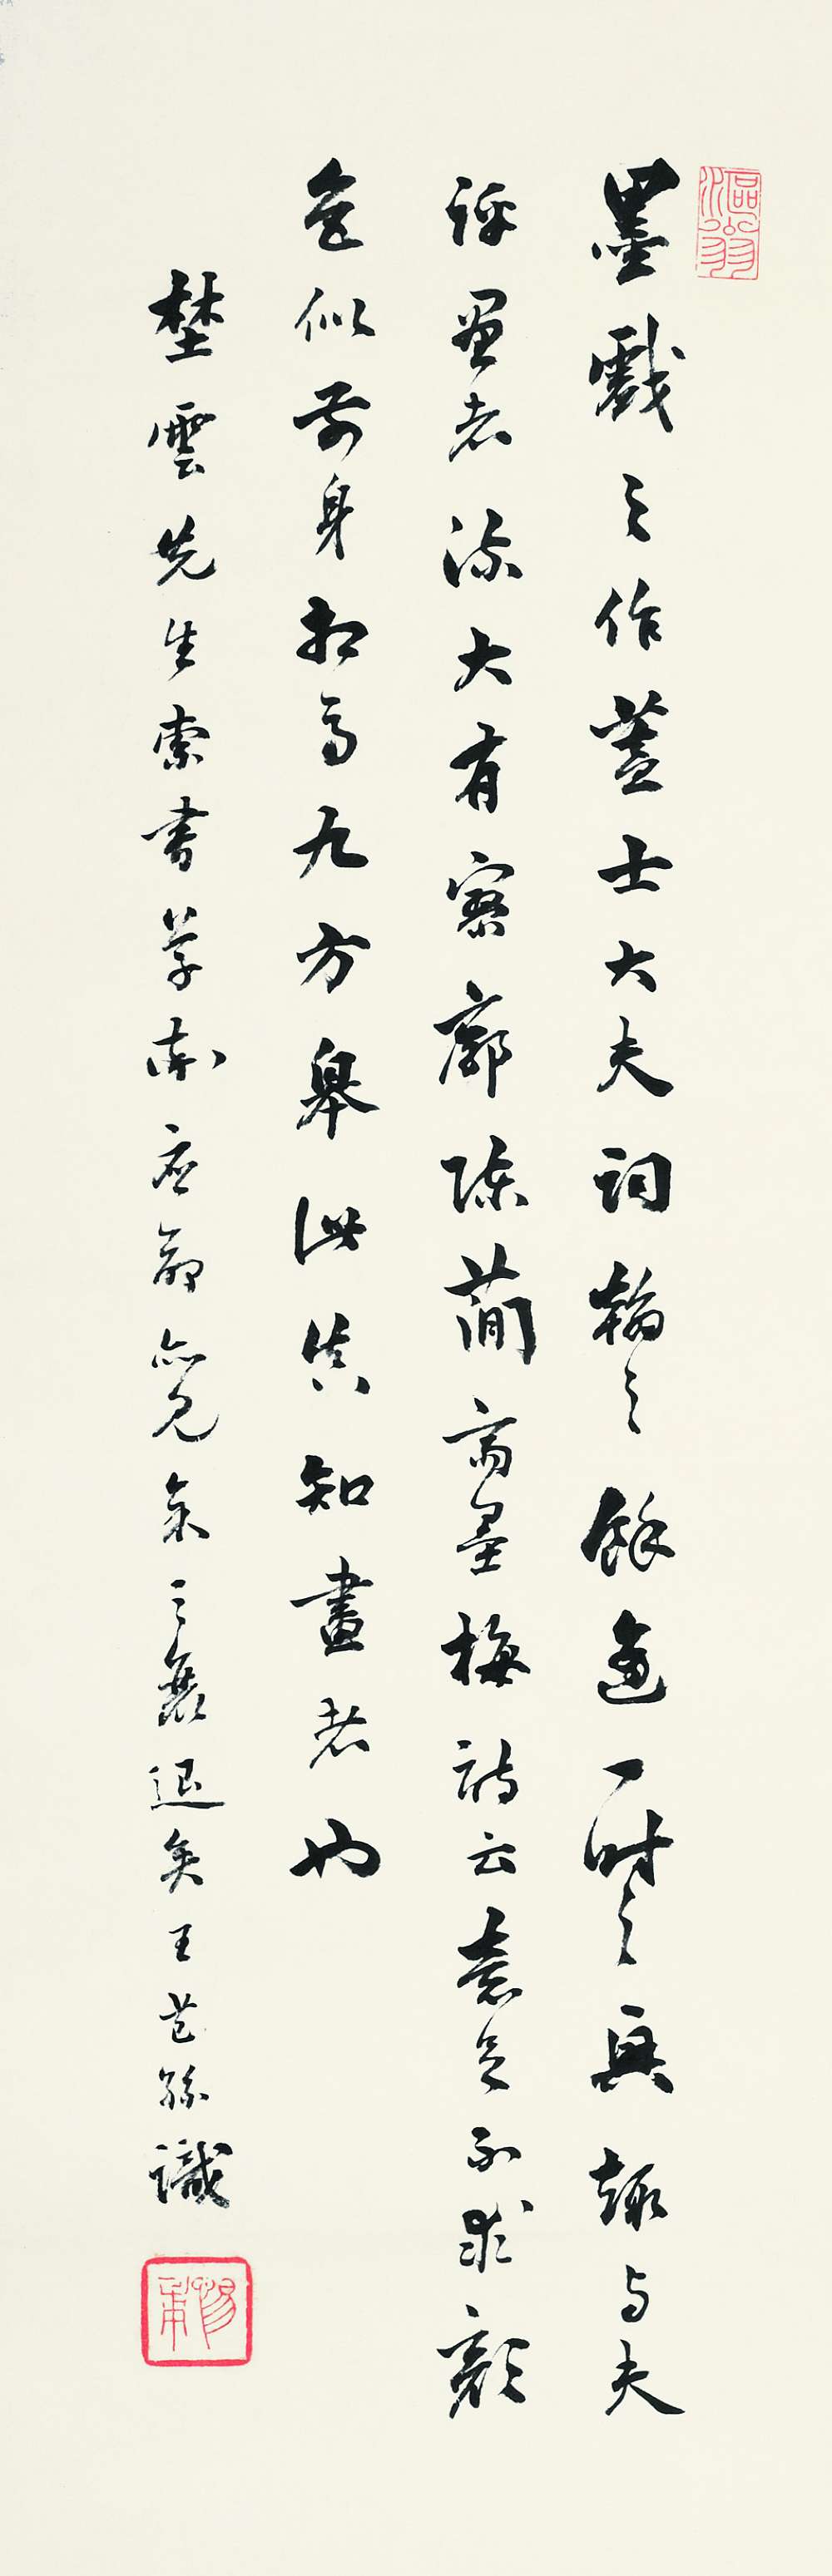 漚翁
墨戲之作蓋士大夫詞翰之餘適一時之興趣与夫
評畫者流大有寥廓陳簡齋墨梅詩云意足不求顏
色似前身相馬九方皋此真知畫者也
埜雲先生索書草率應命亦覺氣之衰退矣王芑孫識
惕甫